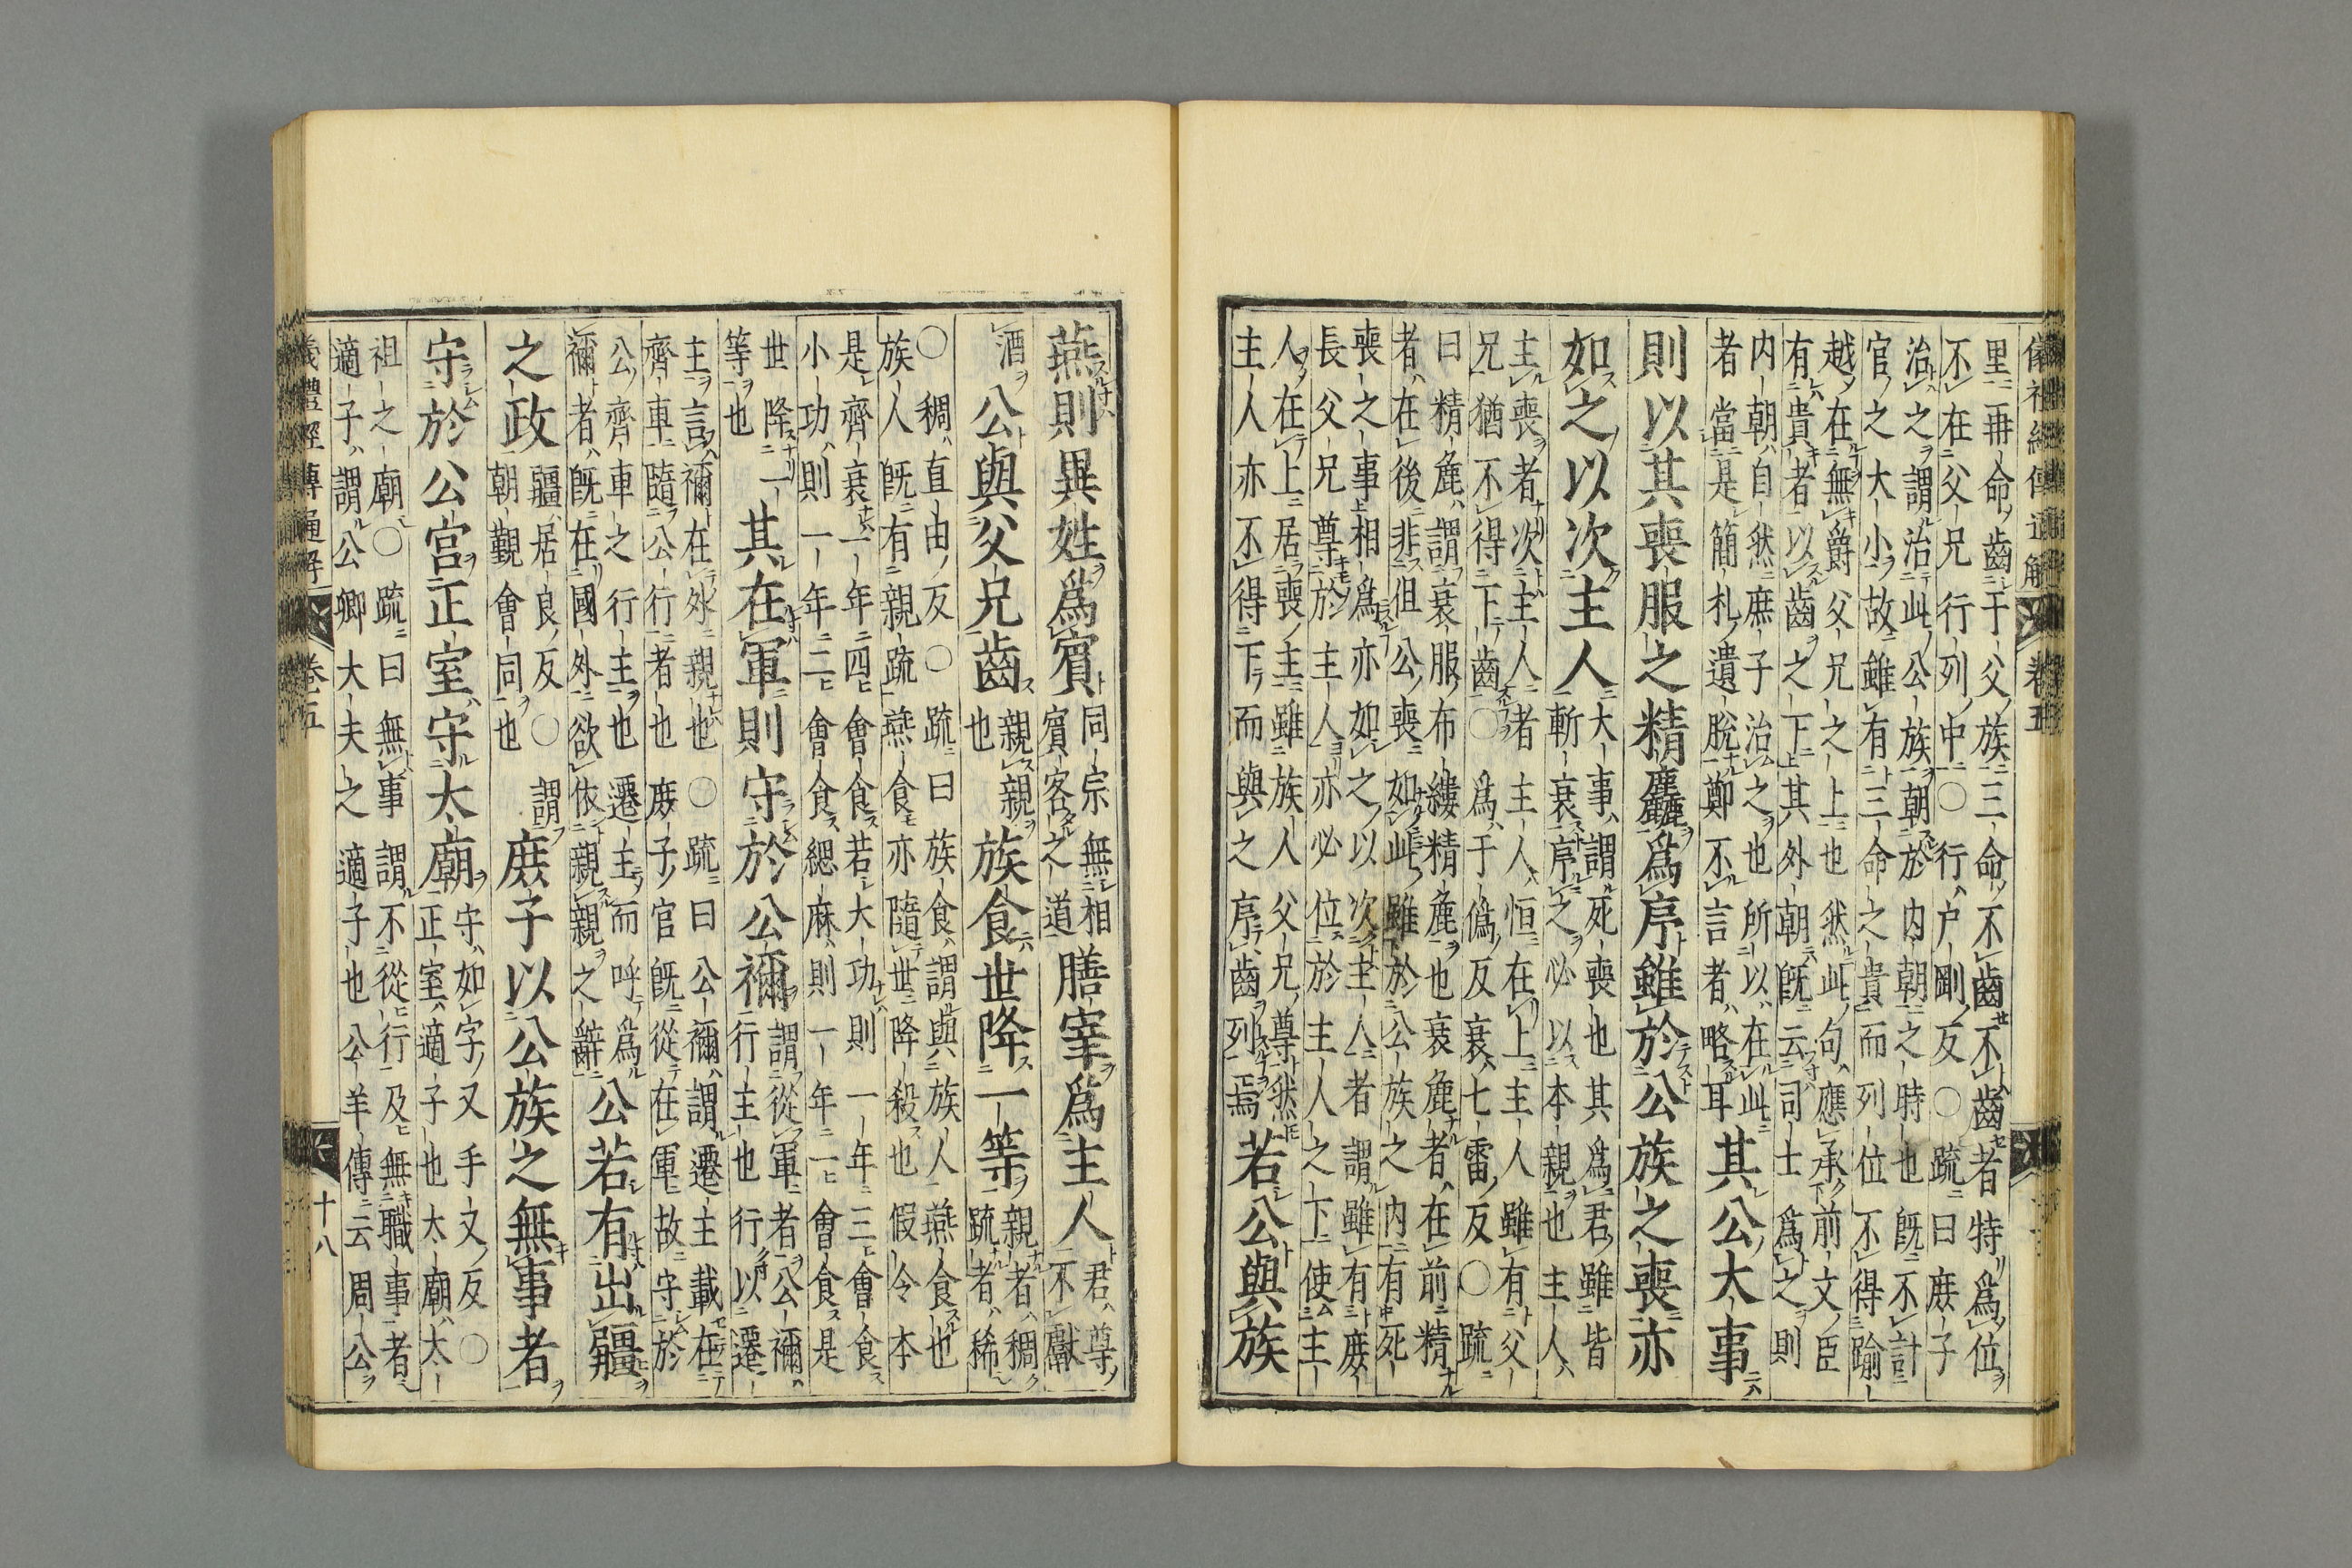 儀禮經傳通解 卷五
里再命齒于父族三命不齒不齒者特爲位
不在父兄行列中○行户剛反○疏曰庶子
治之謂治此公族朝於内朝之時也旣不計
官之大小故雖有三命之貴而列位不得踰
越在無爵父兄之上也然此句應承前文臣
有貴者以齒之下其外朝旣云司士爲之則
内朝自然庶子治之也所以在此
者當是簡札遺脫鄭不言者略耳
其公大事
則以其喪服之精麤爲序雖於公族之喪亦
如之以次主人
大事謂死喪也其爲君雖皆
斬衰序之必以本親也主人
主喪者次主人者主人恒在上主人雖有父
兄猶不得下齒○爲于僞反衰七雷反○疏
曰精麁謂衰服布縷精麁也衰麁者在前精
者在後非但公喪如此雖於公族之内有死
喪之事相爲亦如之以次主人者謂雖有庶
長父兄尊於主人亦必位於主人之下使主
人在上居喪主雖族人父兄尊然
主人亦不得下而與之序齒列焉
若公與族
燕則異姓爲賓
同宗無相
賓客之道
膳宰爲主人
君尊
不獻
酒
公與父兄齒
親親
也
族食世降一等
親者稠
疏者稀
○稠直由反○疏曰族食謂與族人燕食也
族人旣有親疏燕食亦隨世降殺也假令本
是齊衰一年四會食若大功則一年三會食
小功則一年二會食緦麻則一年一會食是
世降一
等也
其在軍則守於公禰
謂從軍者公禰
行主也行以遷
主言禰在外親也○疏曰公禰謂遷主載在
齊車隨公行者也庶子官旣從在軍故守於
公齊車之行主也遷主而呼爲
禰者旣在國外欲依親親之辭
公若有出疆
之政
疆居良反○謂
朝覲會同也
庶子以公族之無事者
守於公宮正室守太廟
守如字又手又反○
正室適子也太廟太
祖之廟○疏曰無事謂不從行及無職事者
適子謂公卿大夫之適子也公羊傳云周公
儀禮經傳通解 卷五 十八